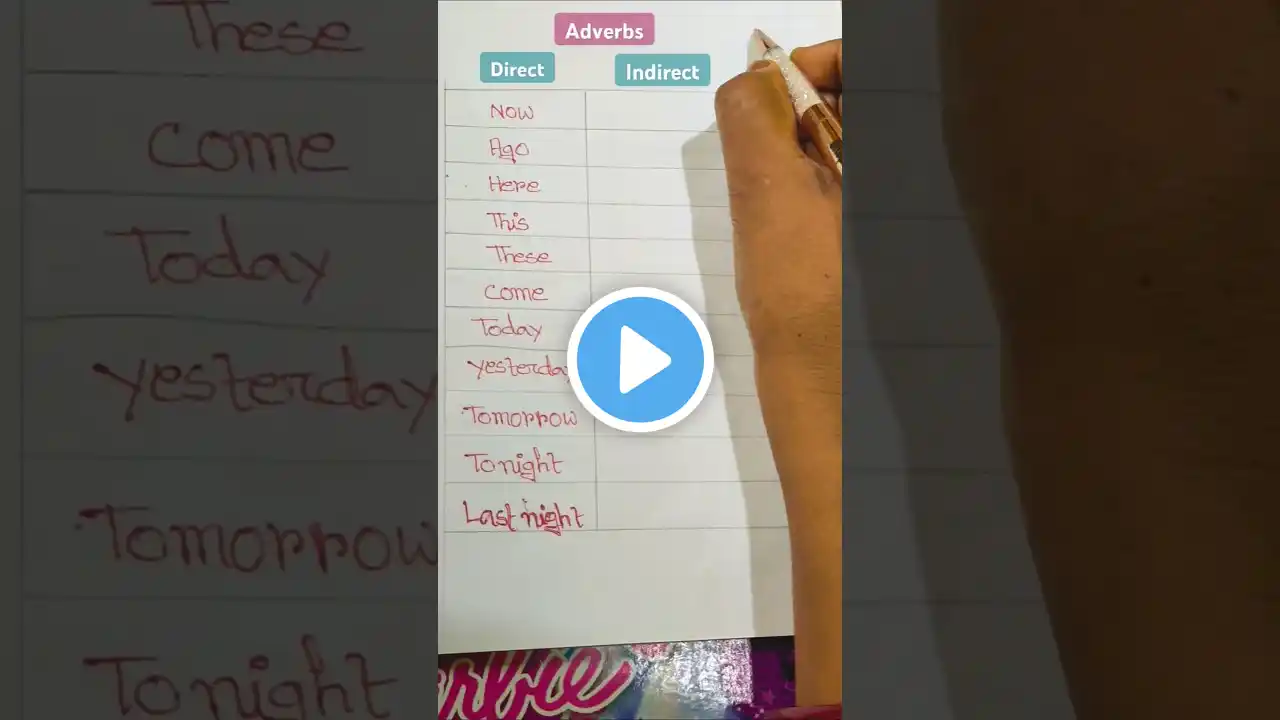 Adverbs
Direct Indirect
Now
Ago
Here
This
These
Come
Today
yesterday
Tomorrow
Tonight
Last night
These
Come
Today
yesterday
Tomorrow
Tonight